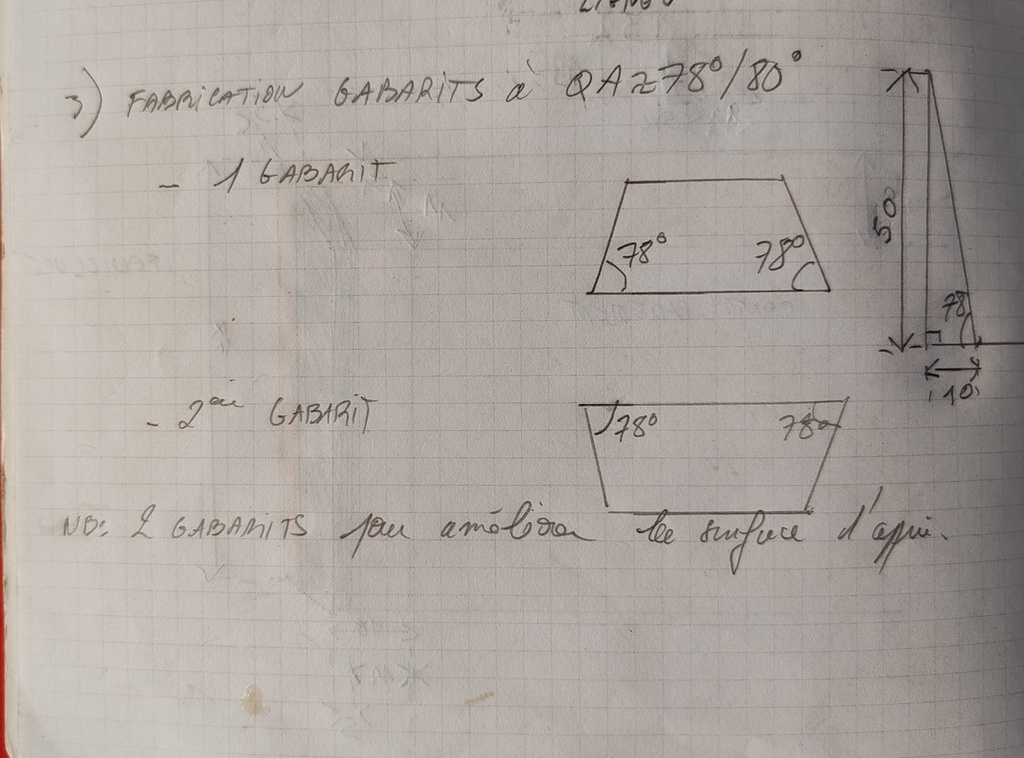 3) FABRICATION GABARITS à QA≈78°/80°
- 1 GABARIT
78° 78°
50
78
10
- 2 GABARIT
78° 78°
NB: 2 GABARITS pour améliorer la surface d'appui.